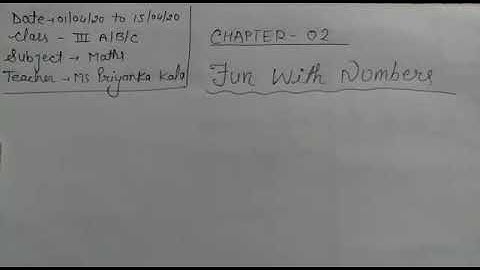 Date → 01/04/20 to 15/04/20
Class - III A/B/C
Subject → Maths
Teacher → Ms Priyanka Kala
CHAPTER - 02
Fun With Numbers